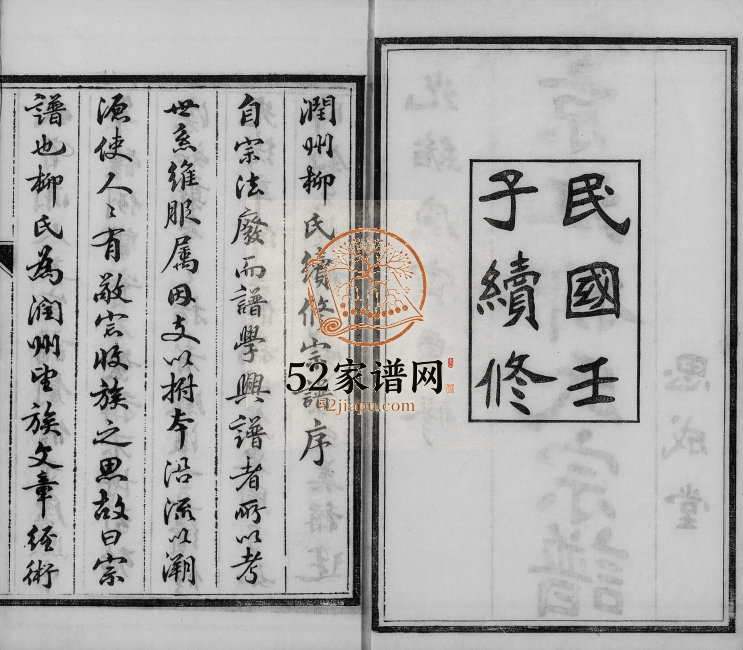 民國壬
子續修
潤州柳氏續修宗譜序
自宗法廢而譜學興譜者所以考
世系維服属因支以拊本沿流以溯
源使人〻有敬宗收族之思故曰宗
譜也柳氏為潤州望族文章經術
52家谱网
52jiapu.com
思成堂